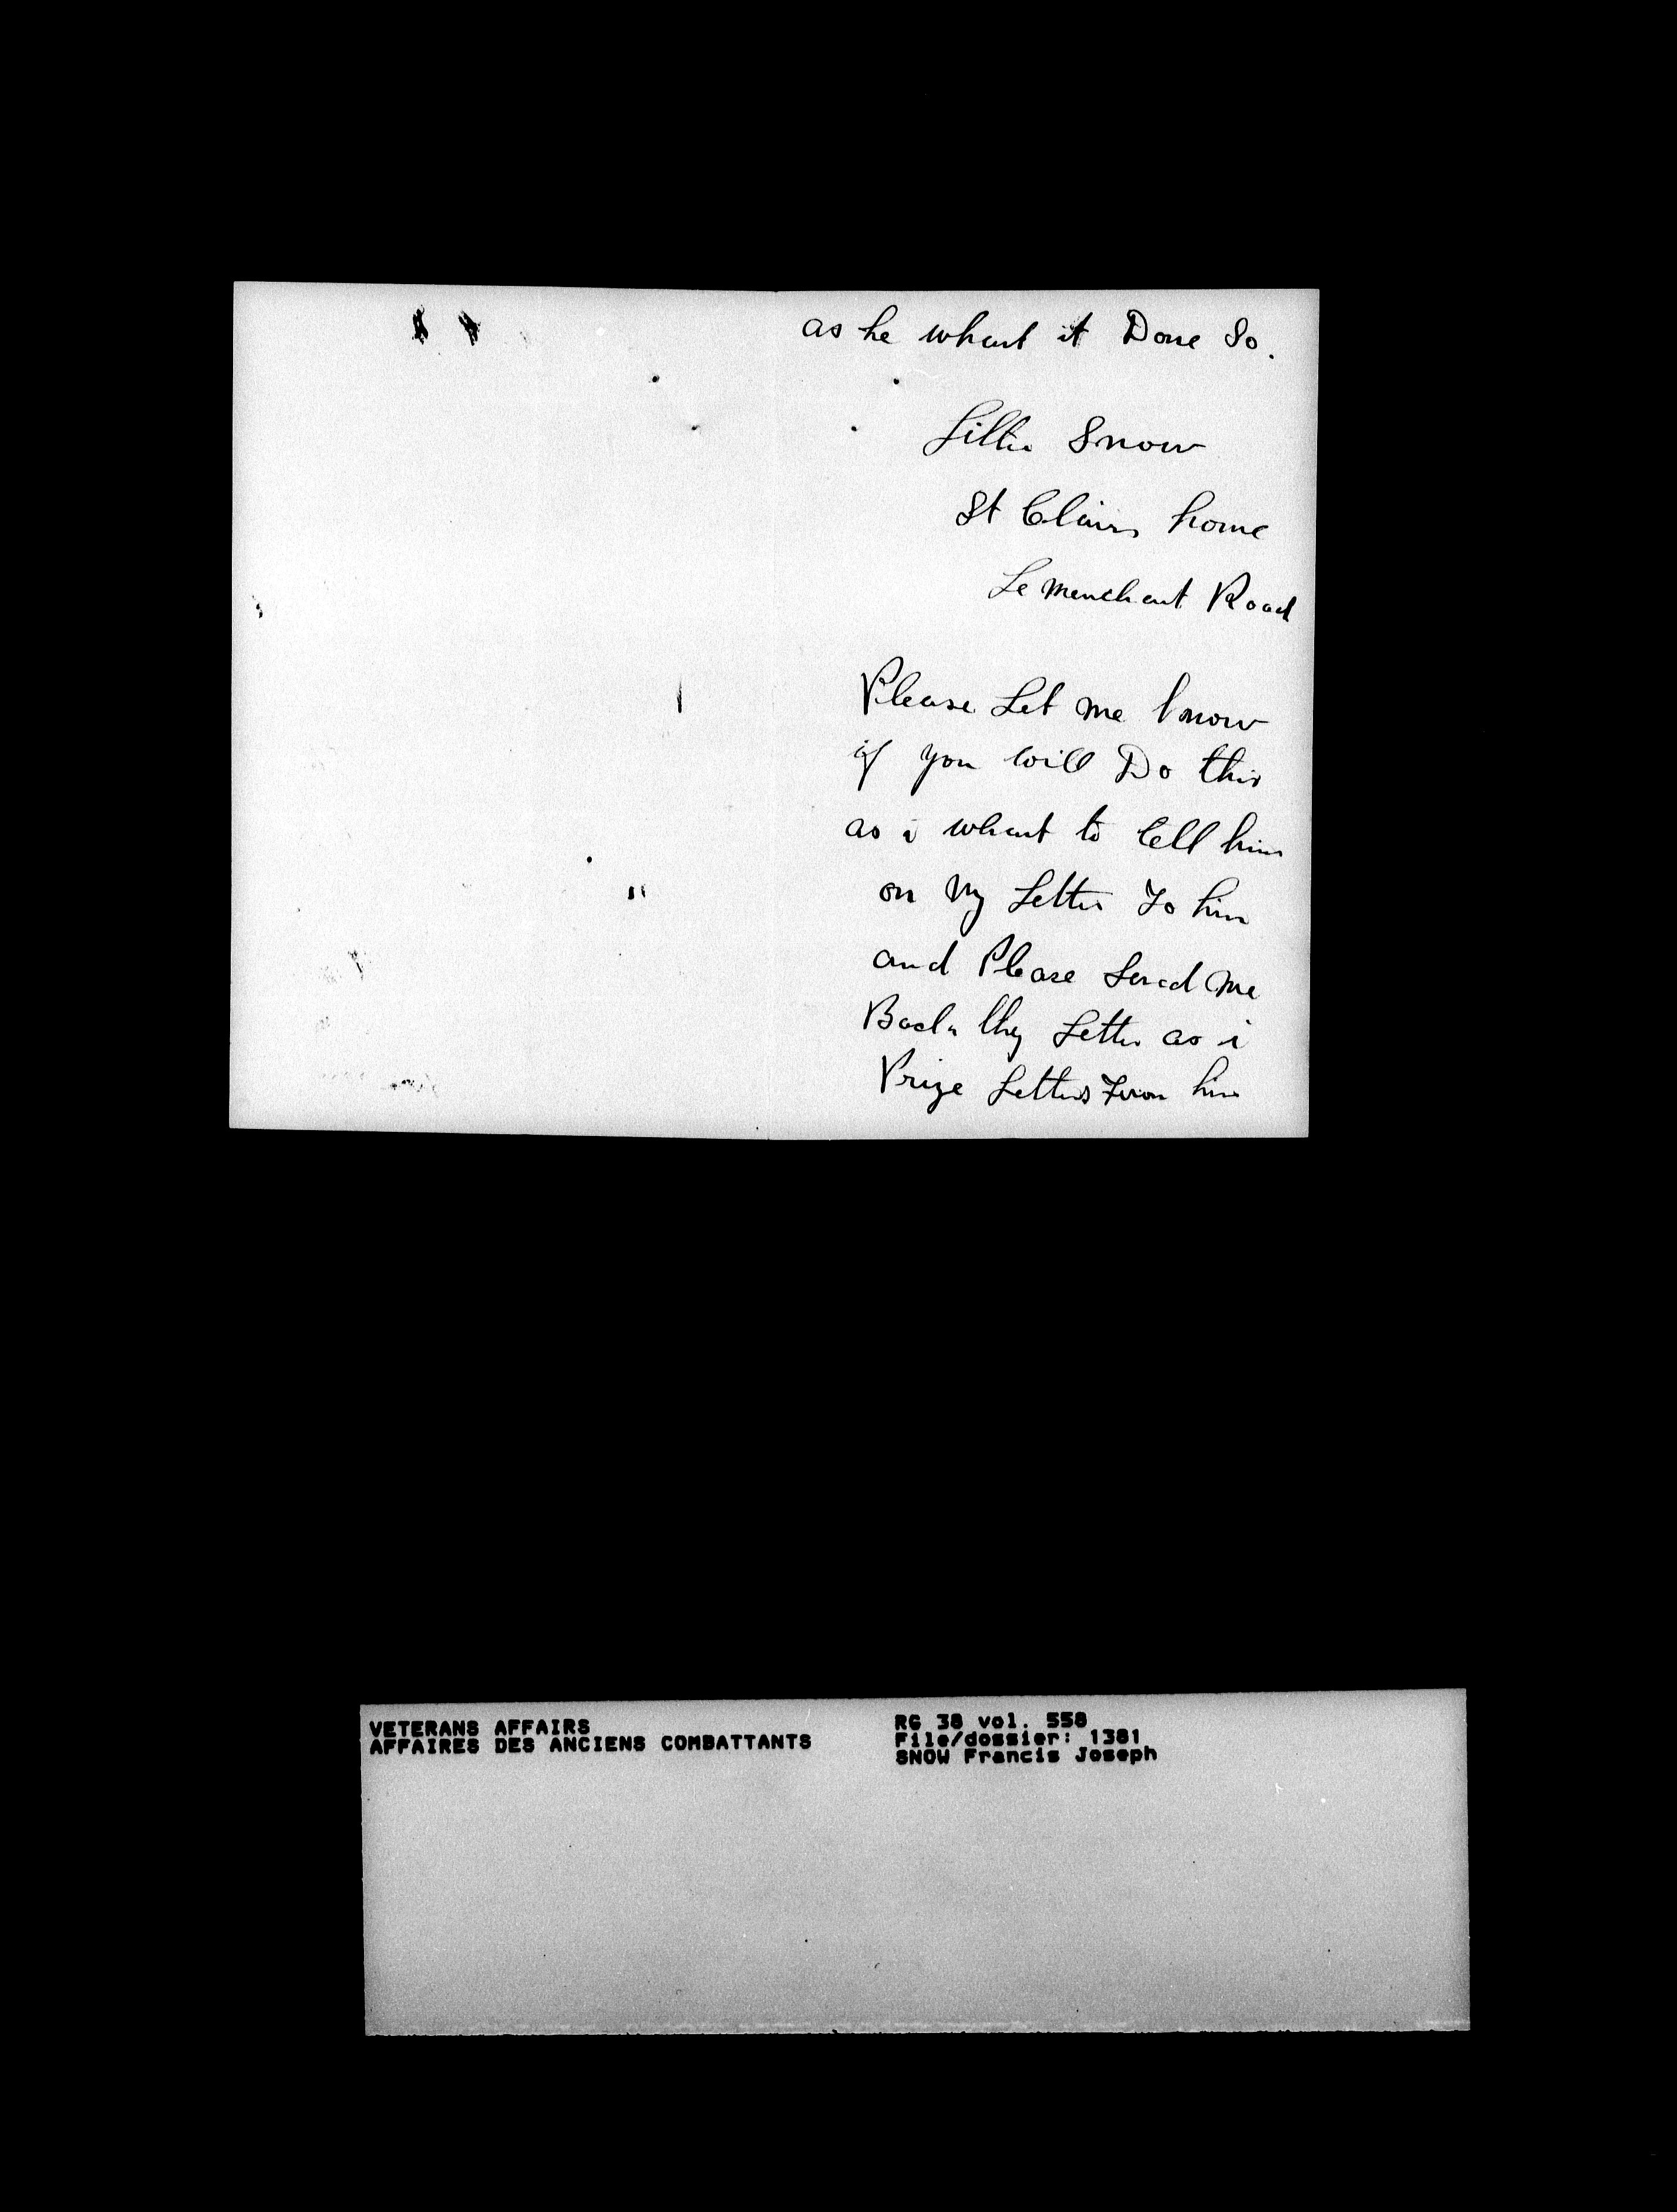 as he whant it Done So.
Lillie Snow
St Clairs home
Le menchant Road
Please Let me know
if you will Do this
as i whant to tell him
on My Letter To him
and Please Send me
Back they Letter as i
Prize Letters From him
VETERANS AFFAIRS
AFFAIRES DES ANCIENS COMBATTANTS
RG 38 vol. 558
File/dossier: 1381
SNOW Francis Joseph